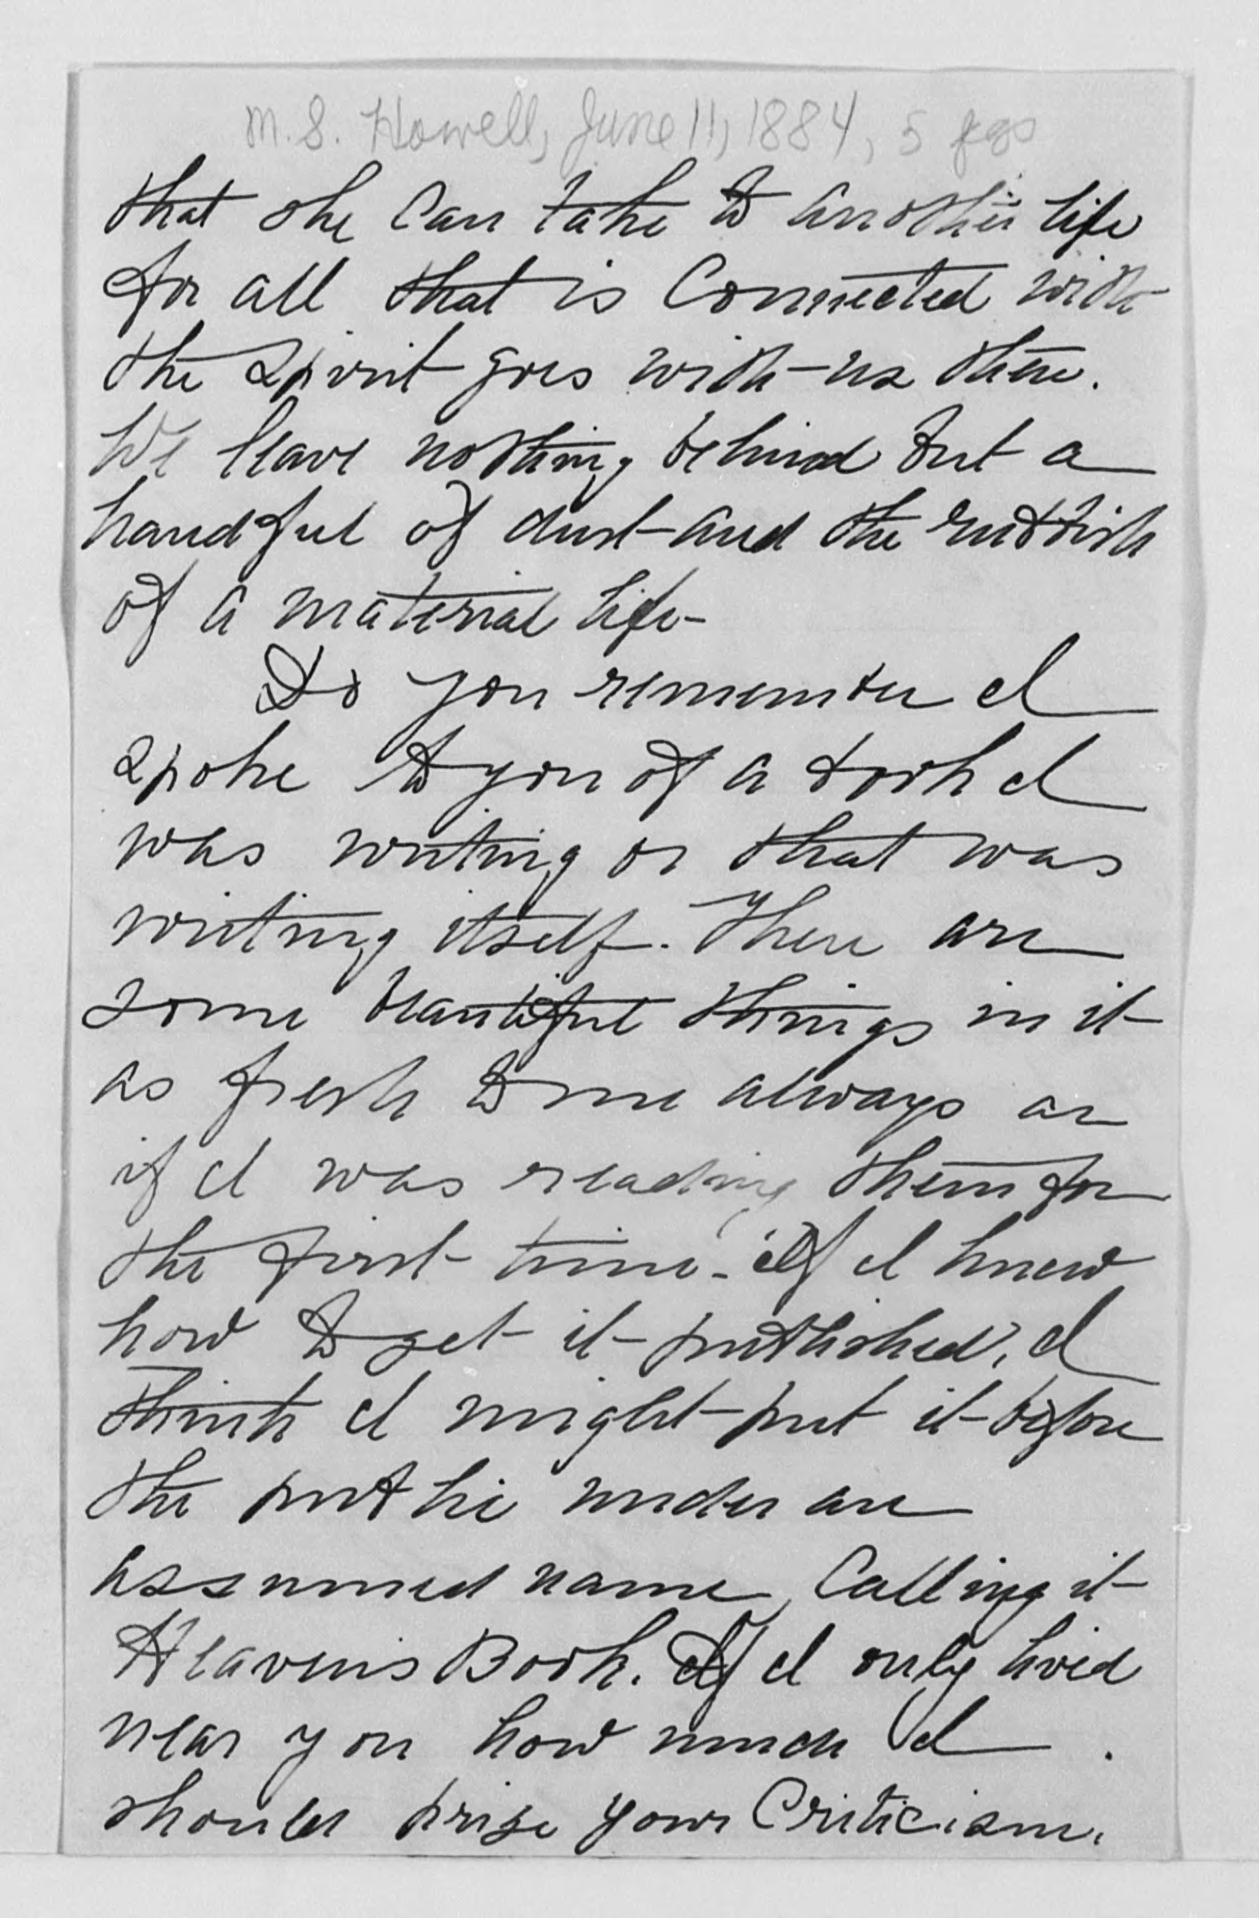 M. S. Howell, June 11, 1884, 5 pgs
that she can take to another life
for all that is connected with
the spirit goes with us there.
We leave nothing behind but a
handful of dust and the rubbish
of a material life -
Do you remember I
spoke to you of a book I
was writing or that was
writing itself. There are
some beautiful things in it
as fresh to me always as
if I was reading them for
the first time. If I knew
how to get it published, I
think I might put it before
the public under an
assumed name, Calling it
Heavens Book. If I only lived
near you how much I
should prize your Criticism.